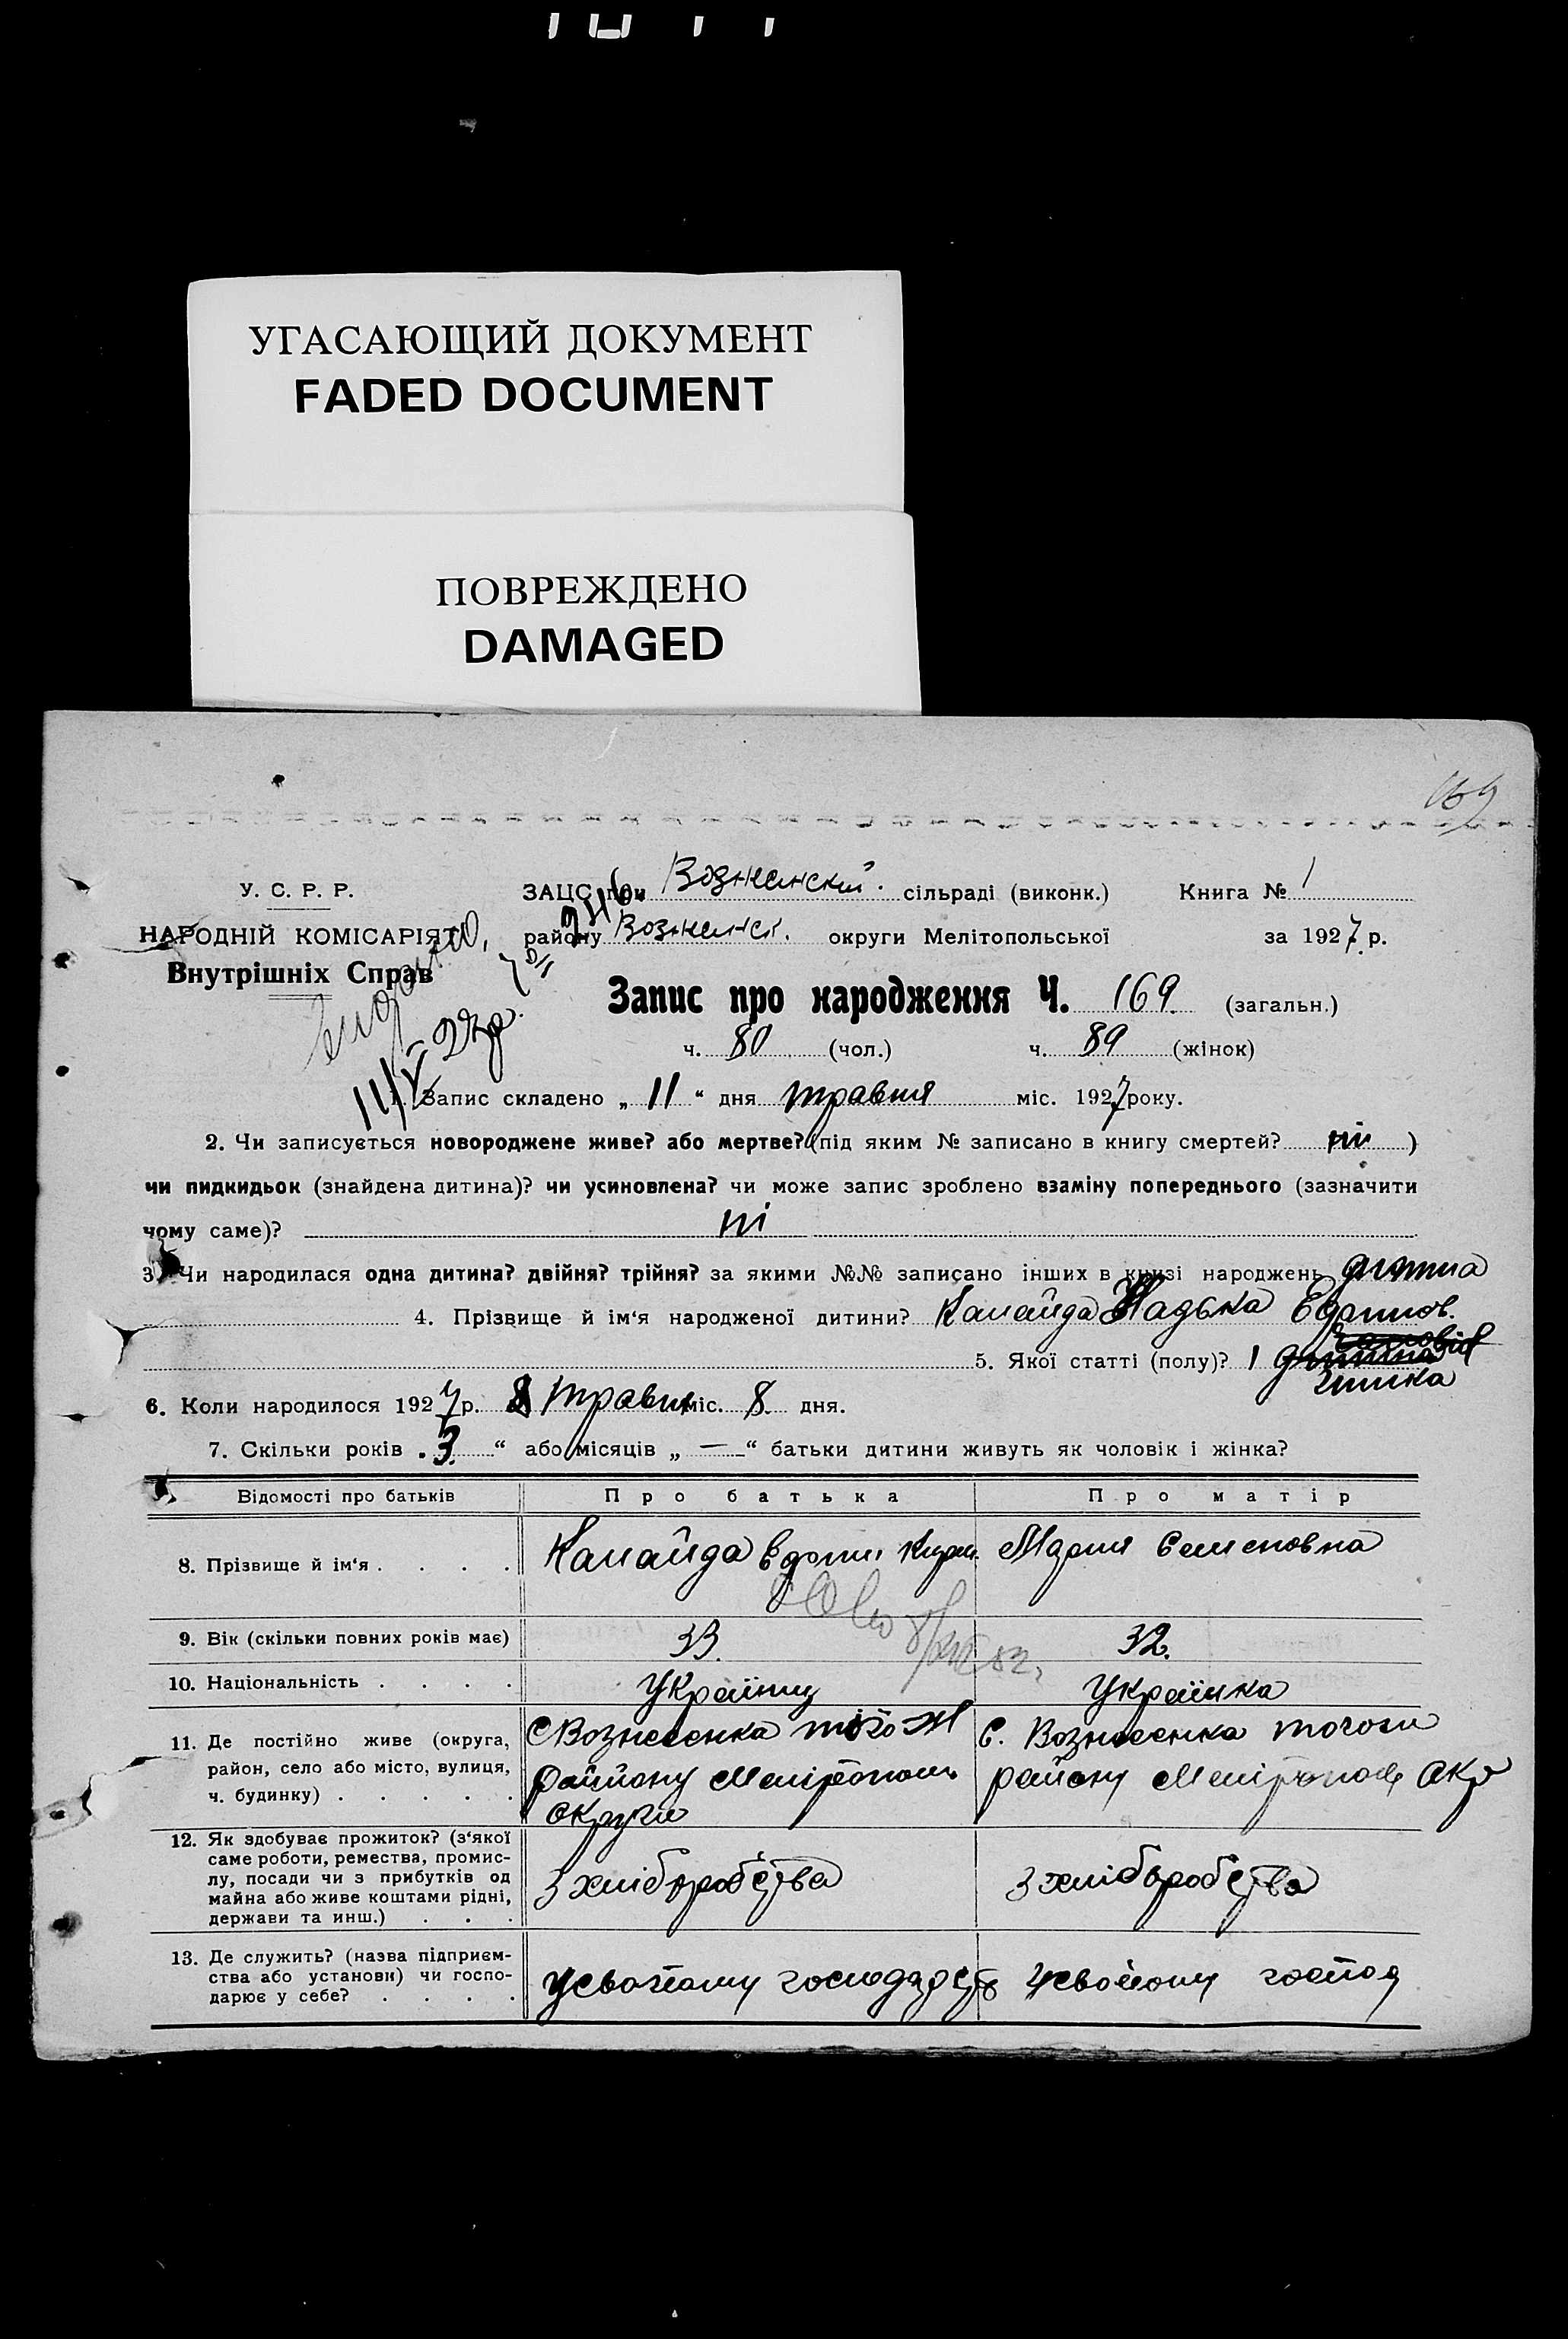 УГАСАЮЩИЙ ДОКУМЕНТ
FADED DOCUMENT
ПОВРЕЖДЕНО
DAMAGED
169
У. С. Р. Р.
НАРОДНІЙ КОМІСАРІЯТ
Внутрішніх Справ
ЗАЦС при Вознесінскій. сільраді (виконк.) Книга № 1
району Вознесінск. округи Мелітопольської за 1927 р.
Запис про народження Ч. 169. (загальн.)
ч. 80 (чол.) ч. 89 (жінок)
1. Запис складено „ 11 “ дня травня міс. 1927 року.
2. Чи записується новороджене живе? або мертве? (під яким № записано в книгу смертей? ні )
чи пидкидьок (знайдена дитина)? чи усиновлена? чи може запис зроблено взаміну попереднього (зазначити
чому саме)? ні
3. Чи народилася одна дитина? двійня? трійня? за якими №№ записано інших в книзі народжень дитина
4. Прізвище й ім‘я народженої дитини? Канайда Надька
5. Якої статті (полу)? 1
6. Коли народилося 1927 р. травня міс. 8 дня.
7. Скільки років „ 3 “ або місяців „ — “ батьки дитини живуть як чоловік і жінка?
Відомості про батьків Про батька Про матір
8. Прізвище й ім‘я . . . . Канайда Мария Семеновна
9. Вік (скільки повних років має) 33. 32.
10. Національність . . . . Українц Українка
11. Де постійно живе (округа, район, село або місто, вулиця, ч. будинку) . . . . .
С Вознесенка того ж
району Меліпополь
округи
С. Вознесенка того ж
району Меліпополь окр
12. Як здобуває прожиток? (з‘якої
саме роботи, ремества, промис-
лу, посади чи з прибутків од
майна або живе коштами рідні,
держави та инш.) . . .
З хліборобства З хліборобства
13. Де служить? (назва підприєм-
ства або установи) чи госпо-
дарює у себе? . . . .
у свойому господарств у свойому господ